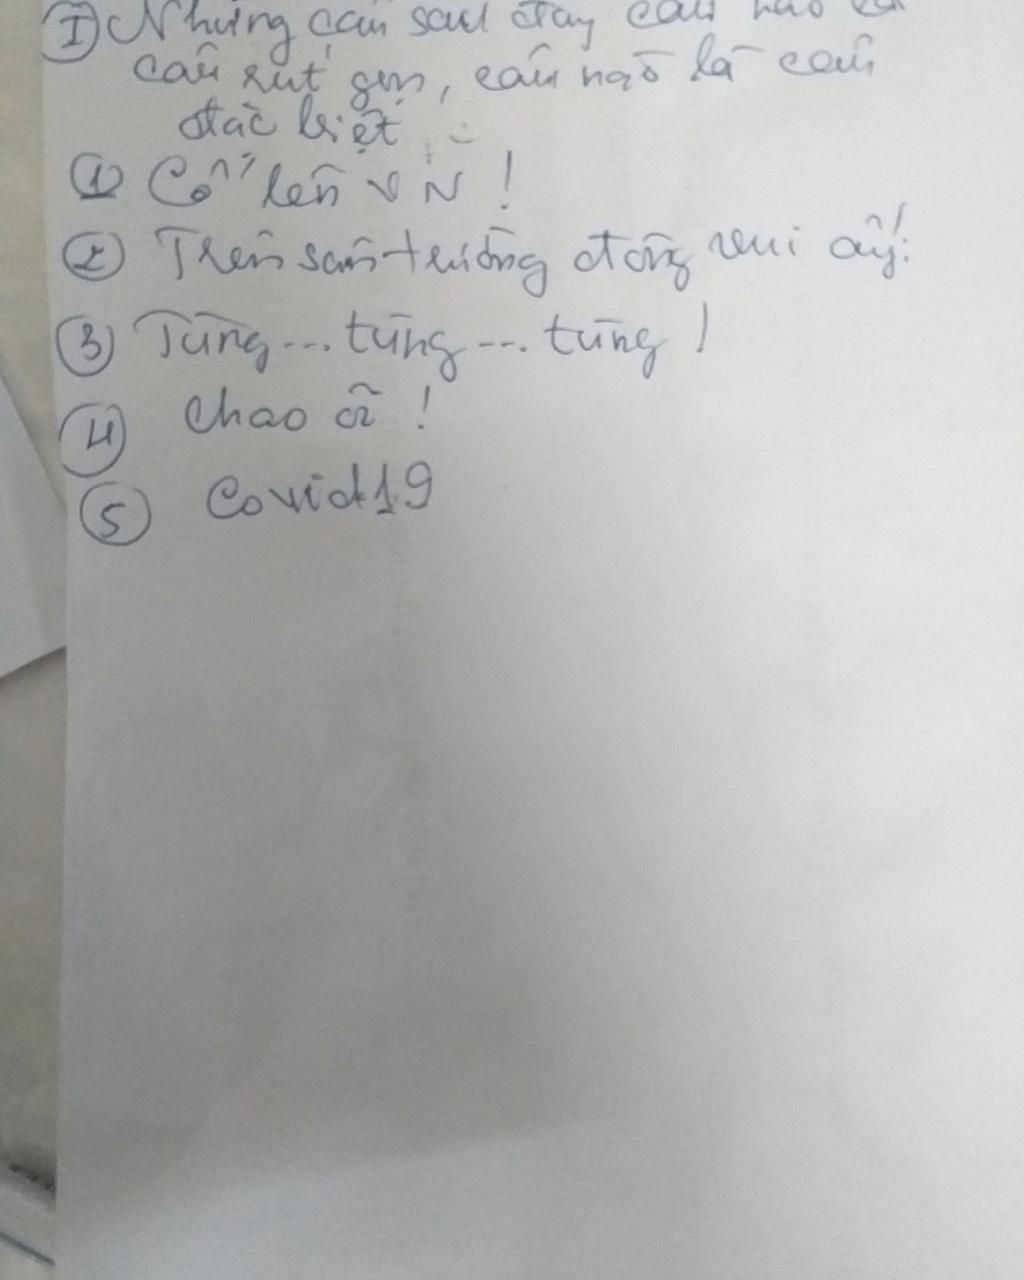 I) Những câu sau đây câu nào là
câu rút gọn, câu nào là câu
đặc biệt
1 Cố lên VN !
2 Trên sân trường đông vui ấy!
3 Tùng ... tùng ... tùng !
4 Chao ôi !
5 Covid19